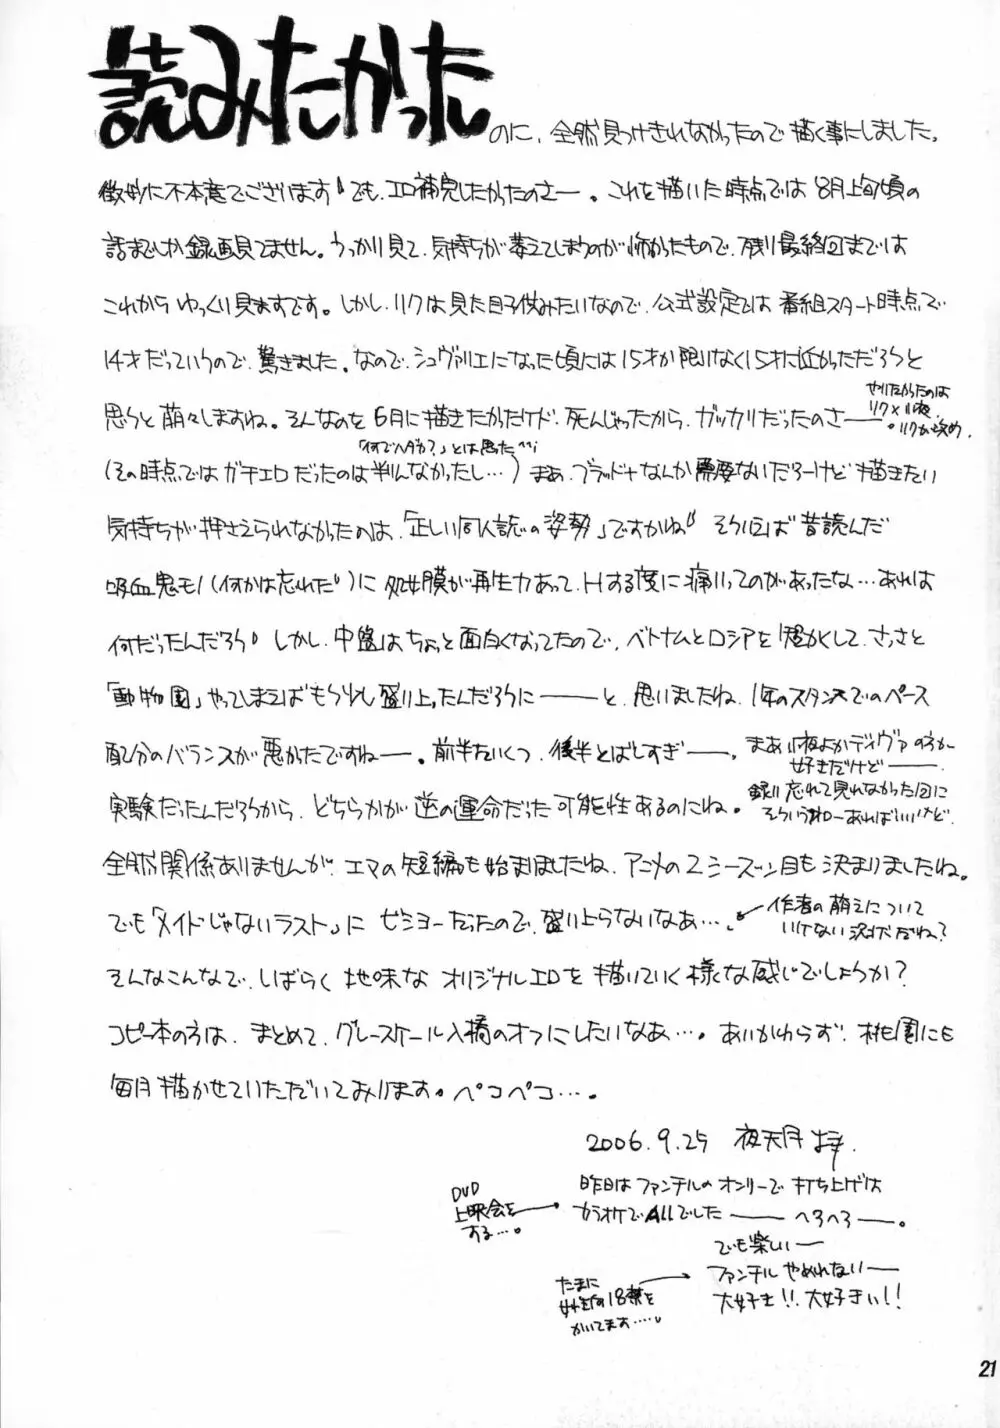 読みたかった のに、全然見つけきれなかったので描く事にしました。
微妙に不本意でございます でも、エロ補完したかたのさー。これを描いた時点では 8月上旬頃の
話までしか録画見てません。うっかり見て、気持ちが萎えてしまうのが怖かたもので、残り最終回までは
これからゆっくり見ますです。しかし、リクは見た目子供みたいなので、公式設定では番組スタート時点で
14才だっていうので、驚きました。なので、シュヴァリエになった頃には15才か限りなく15才に近かっただろうと
思うと萌々しますね。そんなのを6月に描きたかたけど、死んじゃったから、ガッカリだったのさー
やりたかったのは
リク×小夜。
リクが攻め。
「何でハダカ?」とは思た
(その時点ではガチエロだったのは判んなかったし…) まぁ、ブラッド+なんか需要ないだろーけど描きたい
気持ちが押さえられなかたのは、「正しい同人誌の姿勢」ですかね そういえば昔読んだ
吸血鬼モノ(何かは忘れた)に処女膜が再生力あって、Hする度に痛いってのがあったな…あれは
何だったんだろう しかし、中盤はちょっと面白くなってたので、ベトナムとロシアを短かくして、さっさと
「動物園」やってしまえばもう少し盛り上ったんだろうに――と、思いましたね、1年のスタンスでのペース
配分のバランスが悪かたですねー。前半たいくつ、後半とばしすぎー。
まあ小夜よかディヴァの方が
好きだけどー
実験だったんだろうから、どちらかが逆の運命だった可能性あるのにね。
録り忘れて見れなかった回に
そういうネローあればいいけど。
全然関係ありませんが、エマの短編も始まりましたね、アニメの2シーズン目も決まりましたね。
でも「メイドじゃないラスト」にビミョーだったので、盛り上らないなあ…。
作者の萌えについて
いけない況状だね?
そんなこんなで、しばらく地味なオリジナルエロを描いていく様な感じでしょうか?
コピー本の方は、まとめて、グレースケール入稿のオフにしたいなあ…。あいかわらず、桃園にも
毎月描かせていただいております。ペコペコ…。
2006.9.25 夜天月 拝.
DVD
上映会を
する…。
昨日はファンテルのオンリーで打ち上げは
カラオケでAllでした――へろへろ―。
でも楽しいー
ファンテルやめれないー
大好き!!大好きぃ!!
たまに
18禁を
かいてます…。
21